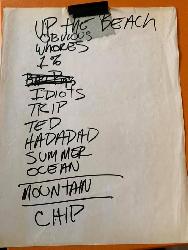 UP THE BEACH
OBVIOUS
WHORES
1%
IDIOTS
TRIP
TED
HADADAD
SUMMER
OCEAN
MOUNTAIN
CHIP